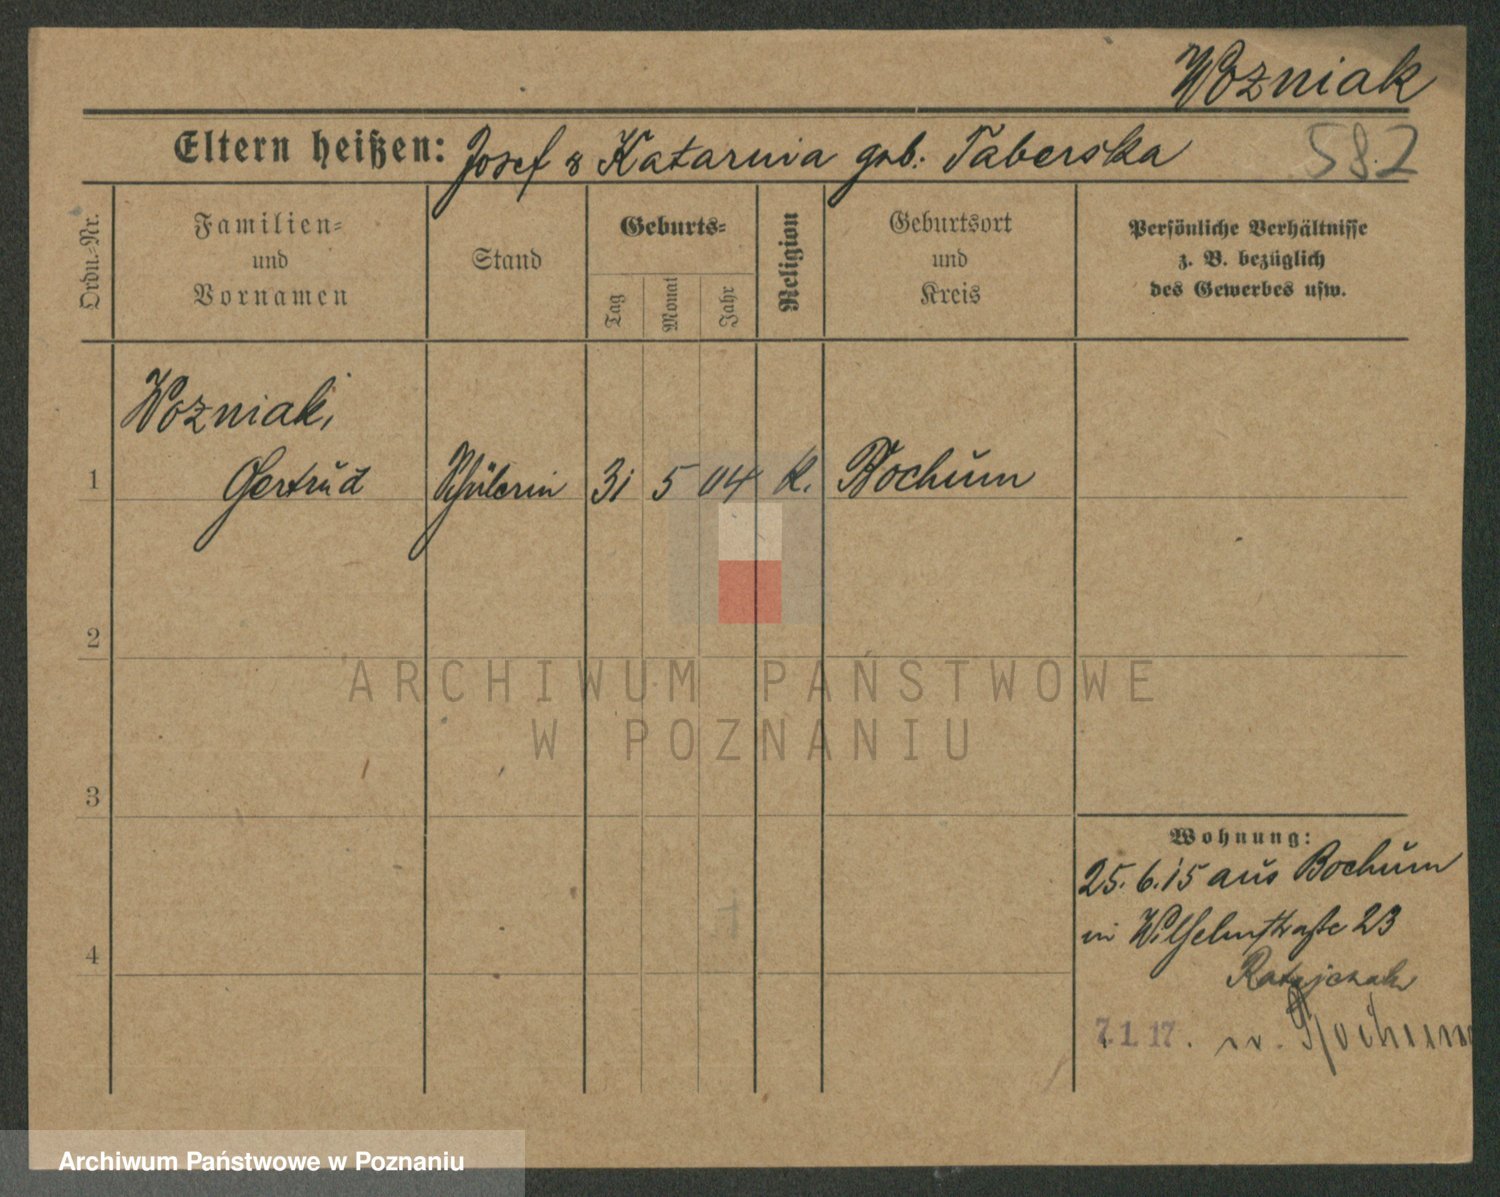 Wozniak
582
Eltern heißen: Josef & Katarnia geb. Taberska
Ordn.-Nr.
Familien-
und
Vornamen
Stand
Geburts-
Tag
Monat
Jahr
Religion
Geburtsort
und
Kreis
Persönliche Verhältnisse
z. B. bezüglich
des Gewerbes usw.
Wozniak,
1 Gertrud Schülerin 31 5 04 K. Bochum
2
ARCHIWUM PAŃSTWOWE
W POZNANIU
3
Wohnung:
25.6.15 aus Bochum
in Wilhelmstraße 23
4
Ratajczak
7.1.17. n. Bochum
Archiwum Państwowe w Poznaniu